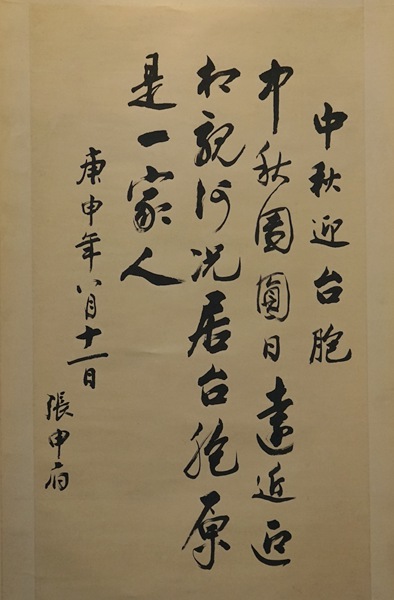 中秋迎台胞
中秋團圓日遠近
相親何況居台胞原
是一家人
庚申年八月十一日
張申府